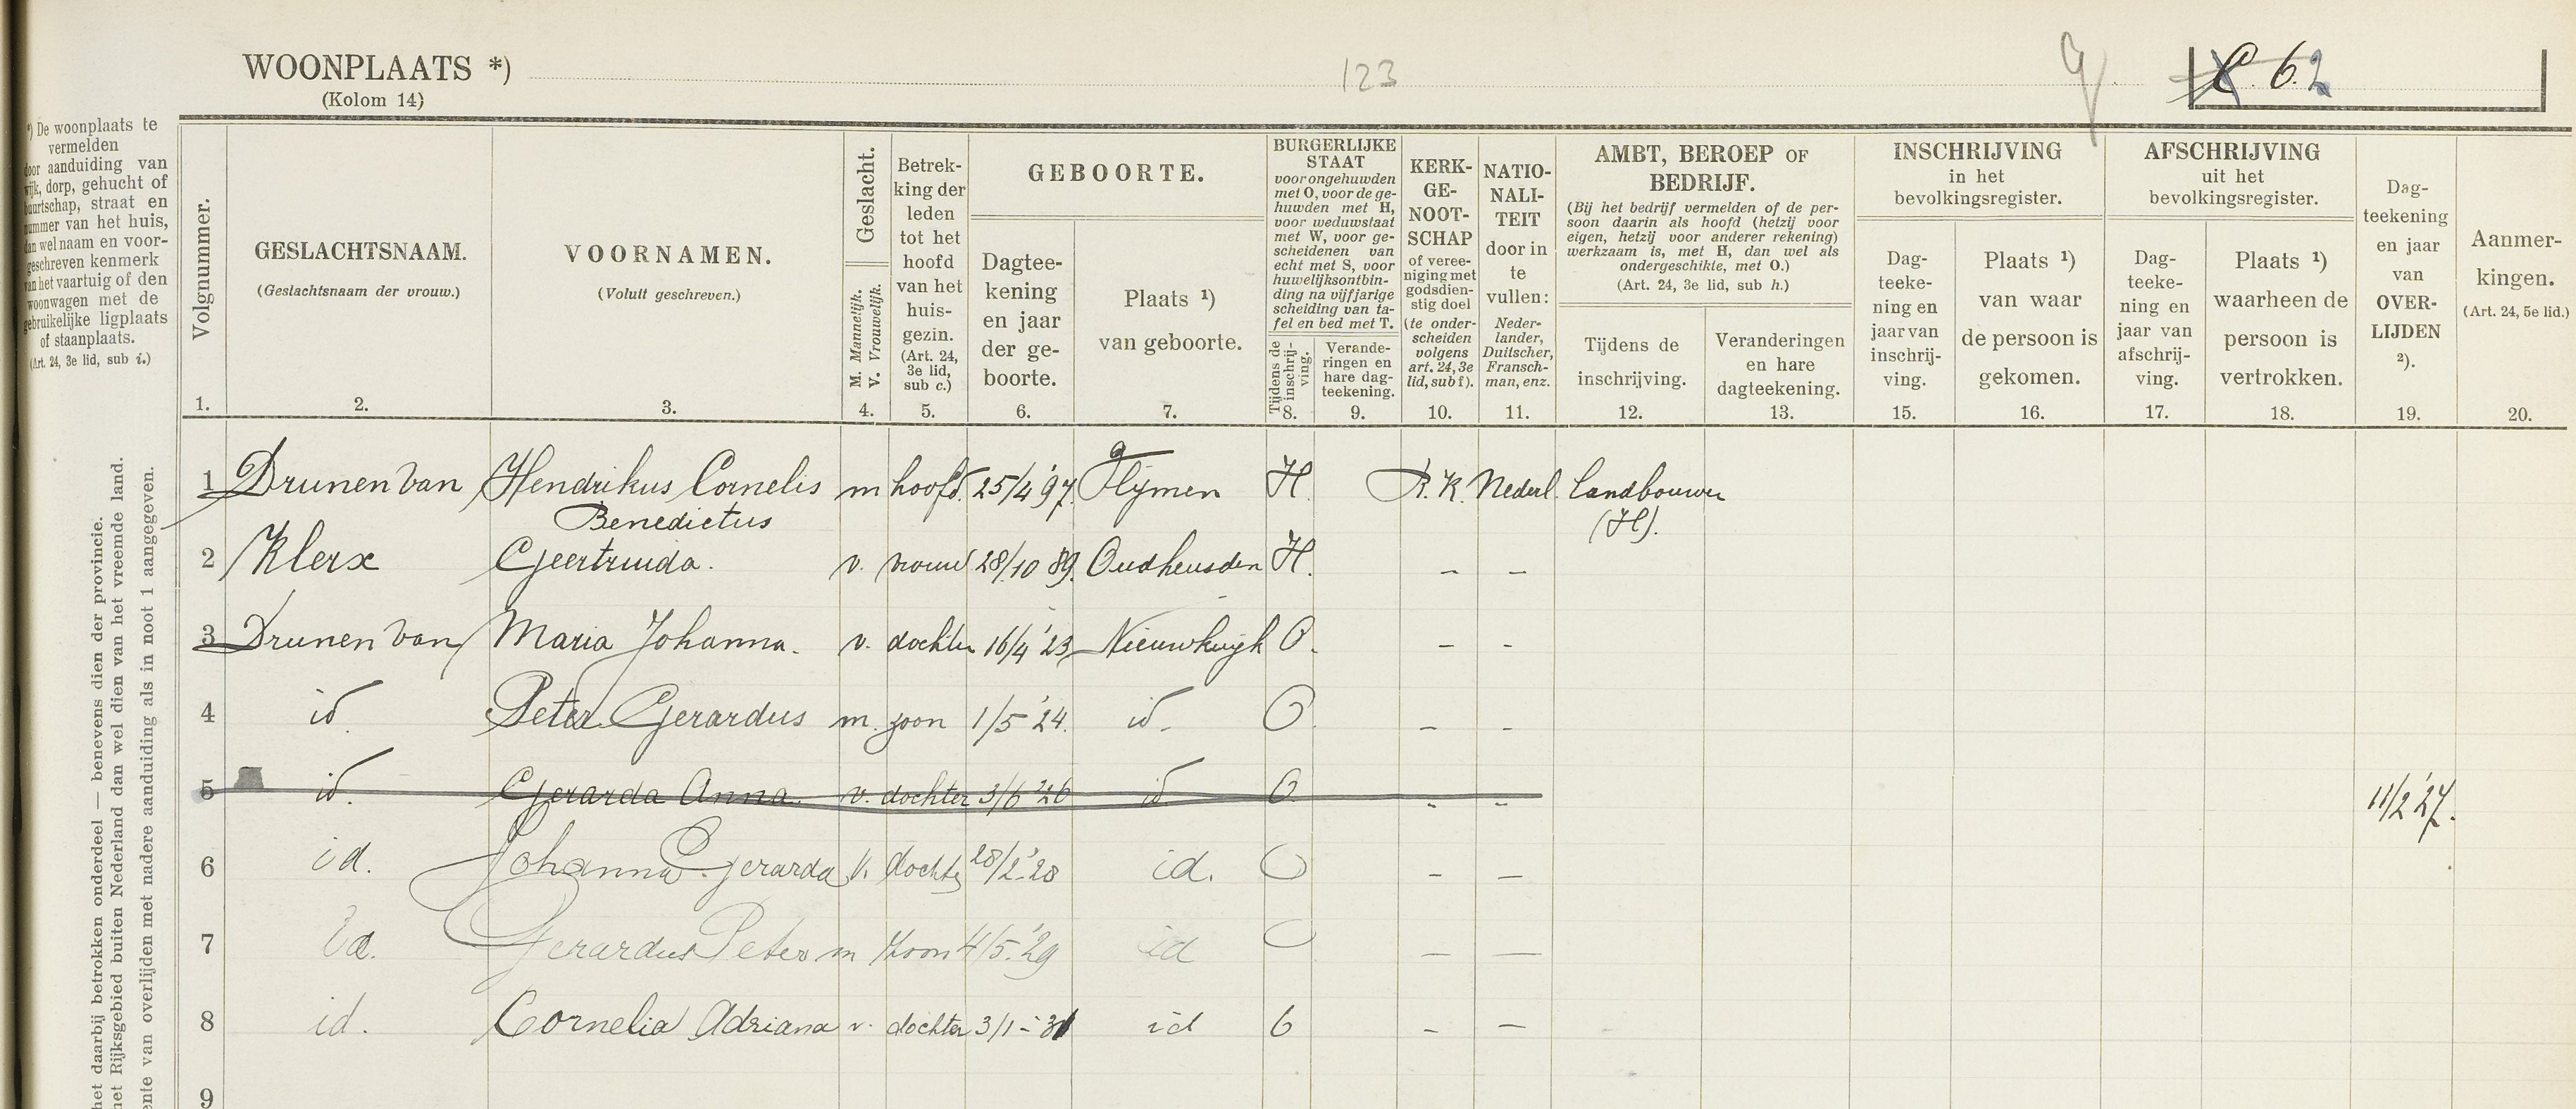 WOONPLAATS *)
(Kolom 14)
123
C. 62
*) De woonplaats te
vermelden
door aanduiding van
wijk, dorp, gehucht of
buurtschap, straat en
nummer van het huis,
dan wel naam en voor-
geschreven kenmerk
van het vaartuig of den
woonwagen met de
gebruikelijke ligplaats
of staanplaats.
(Art. 24, 3e lid, sub i.)
het daarbij betrokken onderdeel — benevens dien der provincie.
het Rijksgebied buiten Nederland dan wel dien van het vreemde land.
ente van overlijden met nadere aanduiding als in noot 1 aangegeven.
Volgnummer.
1.
GESLACHTSNAAM.
(Geslachtsnaam der vrouw.)
2.
VOORNAMEN.
(Voluit geschreven.)
3.
Geslacht.
M. Mannelijk.
V. Vrouwelijk.
4.
Betrek-
king der
leden
tot het
hoofd
van het
huis-
gezin.
(Art. 24,
3e lid,
sub c.)
5.
GEBOORTE.
Dagtee-
kening
en jaar
der ge-
boorte.
6.
Plaats ¹)
van geboorte.
7.
BURGERLIJKE
STAAT
voor ongehuwden
met O, voor de ge-
huwden met H,
voor weduwstaat
met W, voor ge-
scheidenen van
echt met S, voor
huwelijksontbin-
ding na vijfjarige
scheiding van ta-
fel en bed met T.
Tijdens de
inschrij-
ving.
8.
Verande-
ringen en
hare dag-
teekening.
9.
KERK-
GE-
NOOT-
SCHAP
of veree-
niging met
godsdien-
stig doel
(te onder-
scheiden
volgens
art. 24, 3e
lid, sub f).
10.
NATIO-
NALI-
TEIT
door in
te
vullen:
Neder-
lander,
Duitscher,
Fransch-
man, enz.
11.
AMBT, BEROEP OF
BEDRIJF.
(Bij het bedrijf vermelden of de per-
soon daarin als hoofd (hetzij voor
eigen, hetzij voor anderer rekening)
werkzaam is, met H, dan wel als
ondergeschikte, met O.)
(Art. 24, 3e lid, sub h.)
Tijdens de
inschrijving.
12.
Veranderingen
en hare
dagteekening.
13.
INSCHRIJVING
in het
bevolkingsregister.
Dag-
teeke-
ning en
jaar van
inschrij-
ving.
15.
Plaats ¹)
van waar
de persoon is
gekomen.
16.
AFSCHRIJVING
uit het
bevolkingsregister.
Dag-
teeke-
ning en
jaar van
afschrij-
ving.
17.
Plaats ¹)
waarheen de
persoon is
vertrokken.
18.
Dag-
teekening
en jaar
van
OVER-
LIJDEN
²).
19.
Aanmer-
kingen.
(Art. 24, 5e lid.)
20.
1 Drunen van Hendrikus Cornelis m hoofd. 25/4 '97. Vlijmen H. R.K. Nederl. Landbouwer
Benedictus (H).
2 Klerx Geertruida. v. vrouw 28/10 89. Oudheusden H. – –
3 Drunen van Maria Johanna. v. dochter 16/4 '23 Nieuwkuijk O. – -
4 id. Peter Gerardus m. zoon 1/5 '24. id. O. – -
5 id. Gerarda Anna. v. dochter 3/6 '26 id. O. - - 11/2 '27.
6 id. Johanna Gerarda v. dochter 28/2 '28 id. O – –
7 id. Gerardus Peter m zoon 4/5 '29 id O – –
8 id. Cornelia Adriana v. dochter 3/1 - 31 id O – –
9